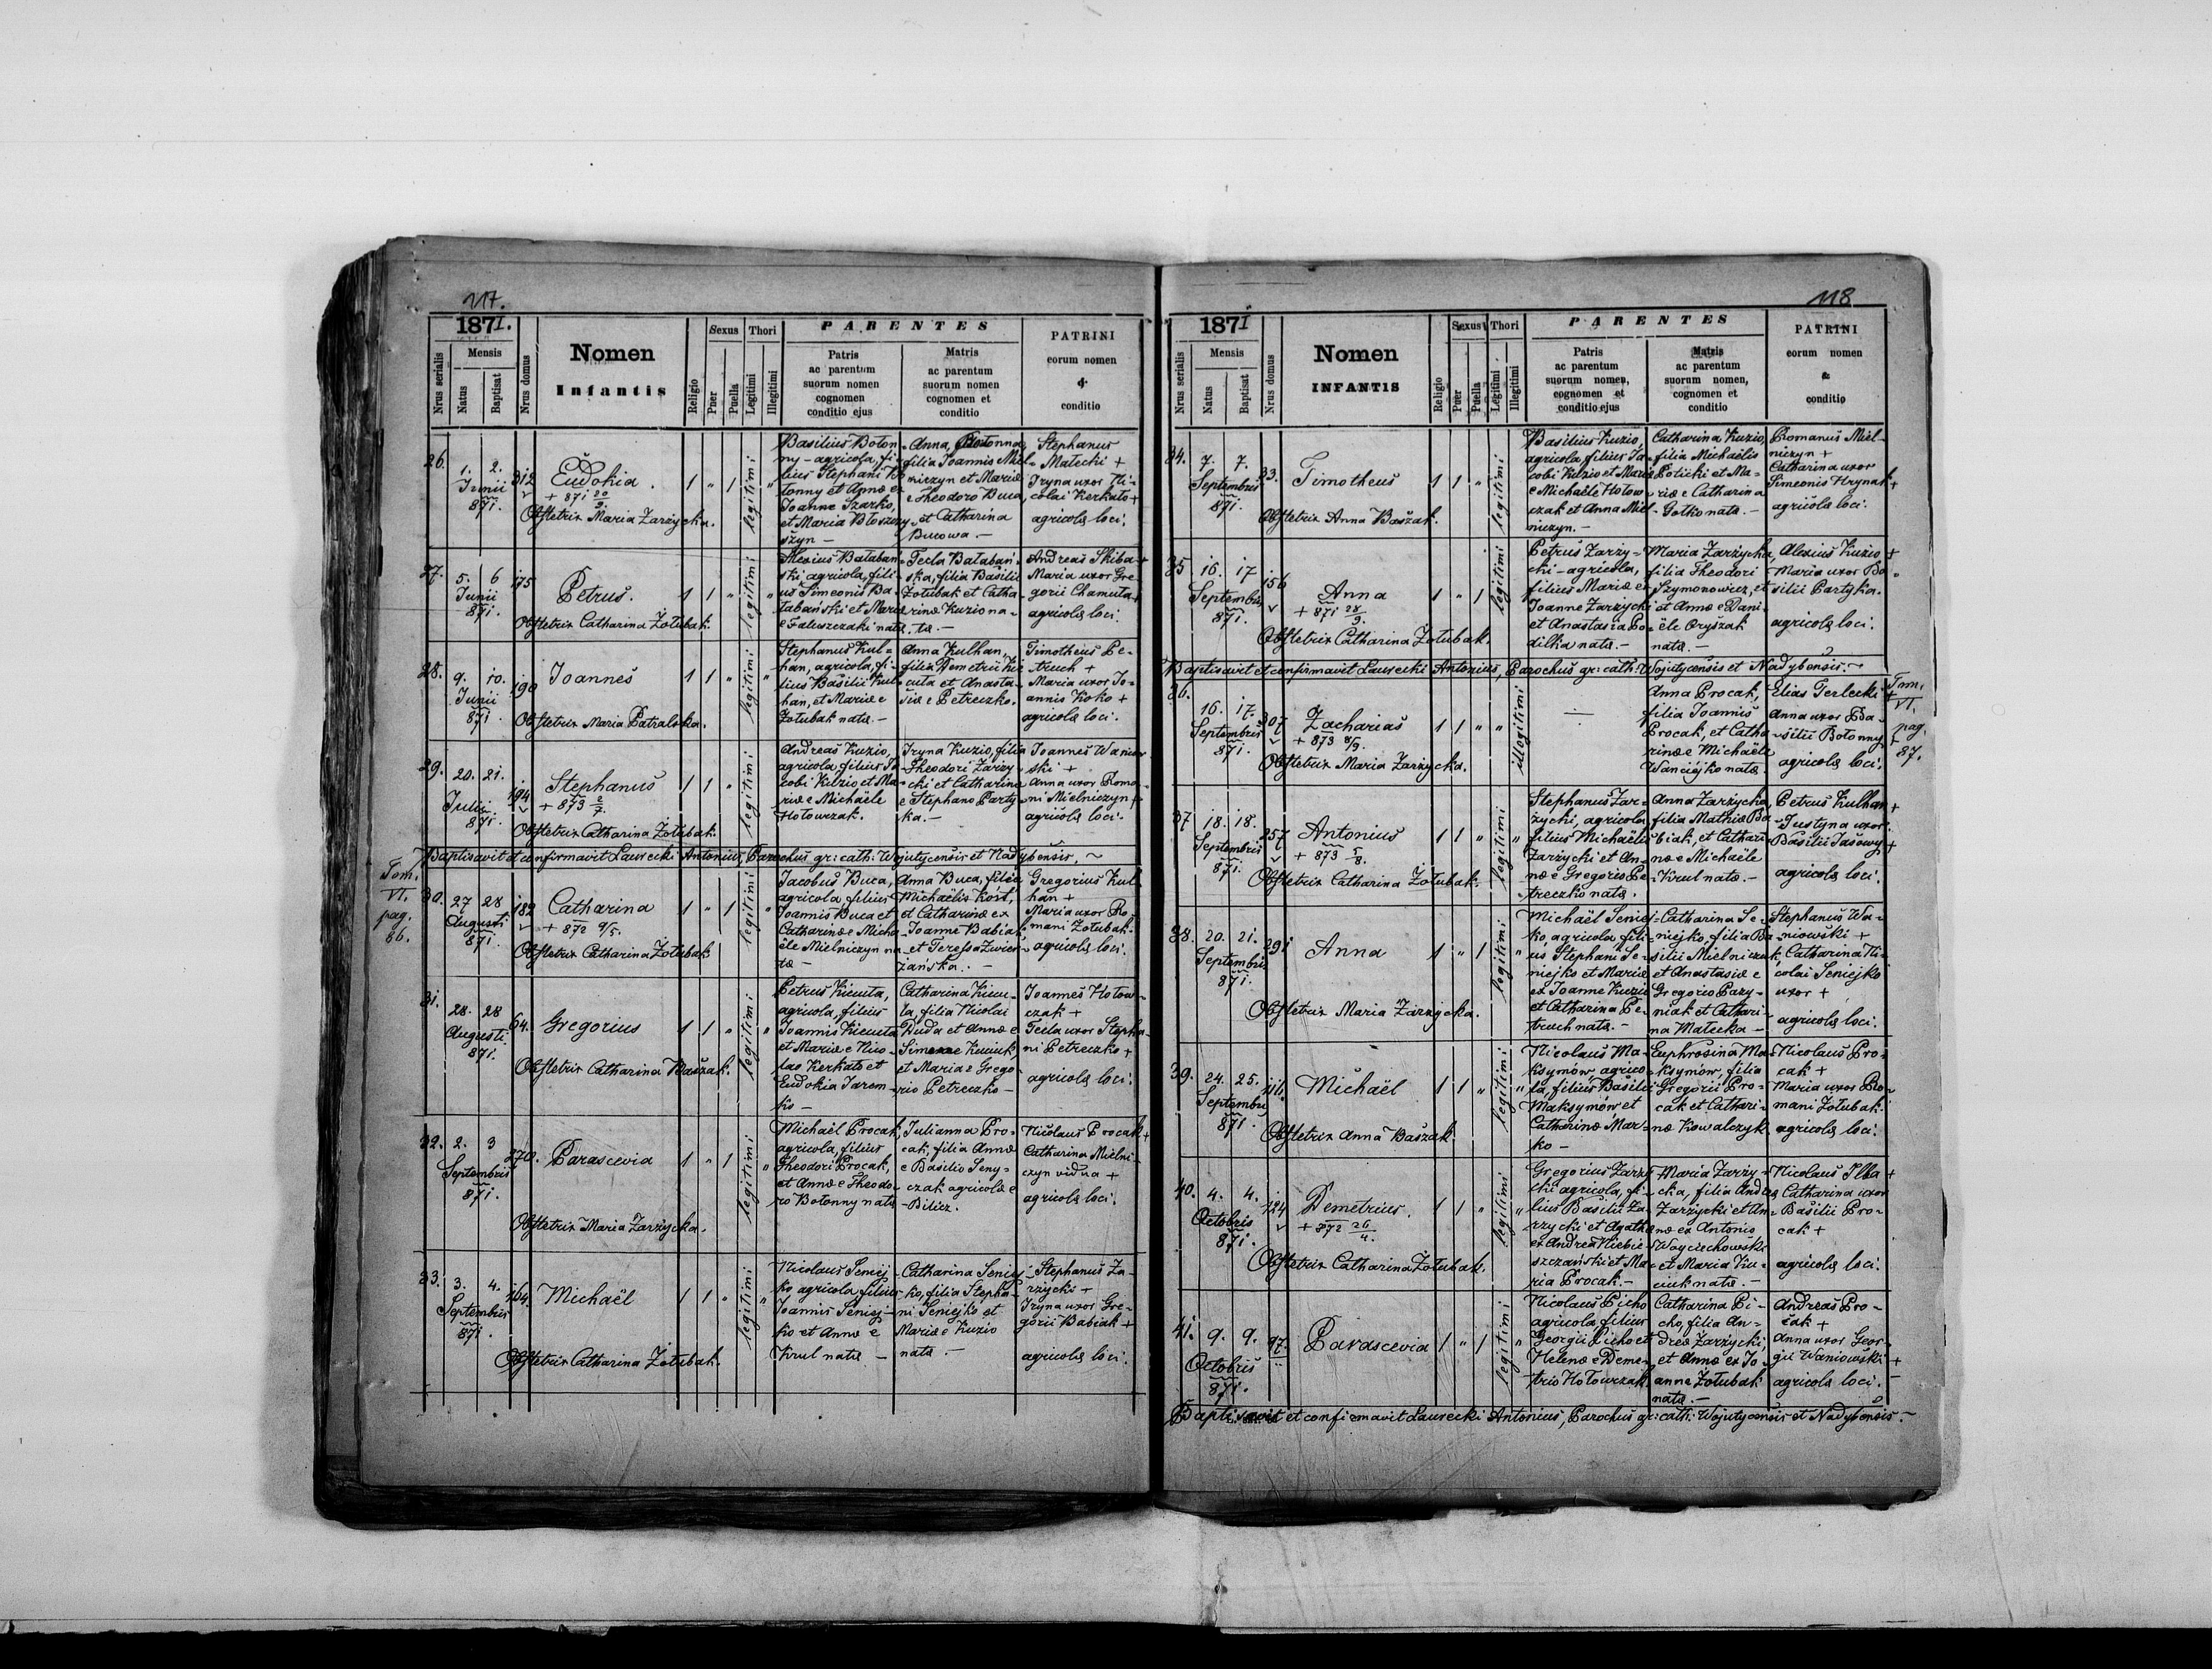 117.
1871.
Nrus serialis
Mensis
Natus
Baptisat
Nrus domus
Nomen
Infantis
Religio
Sexus
Puer
Puella
Thori
Legitimi
Illegitimi
PARENTES
Patris
ac parentum
suorum nomen
cognomen
conditio ejus
Matris
ac parentum
suorum nomen
cognomen et
conditio
PATRINI
eorum nomen
&
conditio
26.
1. 2.
Junii
871.
312
Eudokia.
+ 871 20/9.
Obstetrix Maria Zarzycka.
1 " 1
legitimi
"
Basilius Boton-
ny - agricola, fi-
lius Stephani Bo-
tonny et Annæ ex
Joanne Szarko,
et Maria
szyn -
Anna Botonna,
filia Joannis Miel-
niczyn et Mariæ
e Theodoro Buca
et Catharina
Bucowa. -
Stephanus
Małecki +
Iryna uxor Ni-
colai Kerkato +
agricolæ loci.
27.
5. 6
Junii
871.
175
Petrus.
Obstetrix Catharina Zołubak.
1 1 "
legitimi
"
Alexius Bałaban-
ski agricola, fili-
us Simeonis Ba-
łabański et Mariæ
e Faluszczaki natæ.
Tecla Bałabań-
ska, filia Basilii
Zołubak et Catha-
rinæ Kuzio na-
tæ. -
Andreas Skiba +
Maria uxor Gre-
gorii Chamuta +
agricolæ loci.
28.
9. 10.
Junii
871.
190
Joannes
Obstetrix Maria Patralska.
1 1 "
legitimi
"
Stephanus Kul-
han, agricola, fi-
lius Basilii Kul-
han, et Mariæ e
Zołubak natæ. -
Anna Kulhan,
filia Demetrii Ki-
cuta et Anasta-
siæ e Petreczko.
Timotheus Pe-
truch +
Maria uxor Jo-
annis Koko +
agricolæ loci.
29.
20. 21.
Julii
871.
194
Stephanus
+ 873 2/7.
Obstetrix Catharina Zołubak.
1 1 "
legitimi
Andreas Kuzio,
agricola, filius Ja-
cobi Kuzio et Ma-
riæ e Michaële
Hołowczak.
Iryna Kuzio, filia
Theodori Zarzy-
cki et Catharinæ
e Stephano Party-
ka. -
Joannes Waniow-
ski +
Anna uxor Roma-
ni Mielniczyn +
agricolæ loci.
Baptisavit et confirmavit Laurecki Antonius, Parochus gr: cath: Wojutycensis et Nadybensis. ~
Tom.
VI.
pag.
86.
30.
27 28
Augusti
871.
182
Catharina
+ 872 9/5.
Obstetrix Catharina Zołubak.
1 " 1
legitimi
"
Jacobus Buca,
agricola filius
Joannis Buca et
Catharinæ e Micha-
ële Mielniczyn na-
tæ -
Anna Buca, filia
Michaëlis Kost,
et Catharinæ ex
Joanne Babiak
et Teressa Zwier-
zańska. -
Gregorius Kul-
han +
Maria uxor Ro-
mani Zołubak.
agricolæ loci.
31.
28. 28
Augusti
871.
64.
Gregorius
Obstetrix Catharina Baszak.
1 1 "
legitimi
"
Petrus Kicuta,
agricola, filius
Joannis Kicuta
et Mariæ e Nico-
lao Kerkato et
Eudokia Jarem-
ko -
Catharina Kicu-
ta, filia Nicolai
Duda et Annæ e
Simeone Kuciuk,
et Maria e Grego-
rio Petreczko -
Joannes Hołow-
czak +
Tecla uxor Stepha-
ni Petreczko +
agricolæ loci.
32.
2. 3
Septembris
871.
270.
Parascevia
Obstetrix Maria Zarzycka.
1 " 1
legitimi
"
Michaël Procak,
agricola, filius
Theodori Procak,
et Annæ e Theodo-
ro Botonny natæ
Julianna Pro-
cak, filia Annæ
e Basilio Seny-
czak agricolæ e
Bilicz.
Nicolaus Procak +
Catharina Mielni-
czyn vidua +
agricolæ loci.
33.
3. 4.
Septembris
871.
164.
Michaël
Obstetrix Catharina Zołubak.
1 1 "
legitimi
"
Nicolaus Seniej-
ko agricola, filius
Joannis Seniej-
ko et Annæ e
Krul natæ -
Catharina Seniej-
ko, filia Stepha-
ni Seniejko et
Mariæ e Kuzio
natæ. -
Stephanus Za-
rzycki +
Iryna uxor Gre-
gorii Babiak +
agricolæ loci.
118
1871
Nrus serialis
Mensis
Natus
Baptisat
Nrus domus
Nomen
INFANTIS
Religio
Sexus
Puer
Puella
Thori
Legitimi
Illegitimi
PARENTES
Patris
ac parentum
suorum nomen,
cognomen et
conditio ejus
Matris
ac parentum
suorum nomen,
cognomen et
conditio
PATRINI
eorum nomen
&
conditio
34.
7. 7.
Septembris
871.
33.
Timotheus
Obstetrix Anna Baszak.
1 1 "
legitimi
Basilius Kuzio,
agricola, filius Ja-
cobi Kuzio et Mariæ
e Michaële Hołow-
czak et Anna Miel-
niczyn. -
Catharina Kuzio,
filia Michaëlis
Poticki et Ma-
riæ e Catharina
Gotko nata. -
Romanus Miel-
niczyn +
Catharina uxor
Simeonis Hrynak +
agricolæ loci.
35
16. 17
Septembris
871.
156
Anna
+ 871 28/9.
Obstetrix Catharina Zołubak.
1 " 1
legitimi
Petrus Zarzy-
cki - agricola,
filius Mariæ ex
Joanne Zarzycki
et Anastasia Po-
dilka nata. -
Maria Zarzycka,
filia Theodori
Szymonowicz, et
et Annæ e Dani-
ële Oryszak
nata. -
Alexius Kuzio +
Maria uxor Ba-
silii Partyka.
agricolæ loci.
Baptisavit et confirmavit Laurecki Antonius, Parochus gr: cath: Wojutycensis et Nadybensis. ~
36.
16. 17.
Septembris
871.
307
Zacharias
+ 873 8/9.
Obstetrix Maria Zarzycka.
1 1 "
illegitimi
Anna Procak,
filia Joannis
Procak, et Catha-
rinæ e Michaële
Wanciejko natæ.
Elias Terlecki +
Anna uxor Ba-
silii Botonny +
agricolæ loci.
Tom.
VI.
pag.
87.
37
18. 18.
Septembris
871.
257
Antonius
+ 873 5/8.
Obstetrix Catharina Zołubak.
1 1 "
legitimi
"
Stephanus Zar-
zycki, agricola,
filius Michaëlis
Zarzycki et An-
næ e Gregorio Pe-
treczko natæ.
Anna Zarzycka,
filia Mathiæ Ba-
biak, et Cathari-
næ e Michaële
Krul nata. -
Petrus Kulhan +
Justyna uxor
Basilii Jasowy +
agricolæ loci.
38.
20. 21.
Septembris
871.
291
Anna
Obstetrix Maria Zarzycka.
1 " 1
legitimi
Michaël Seniej-
ko, agricola fili-
us Stephani Se-
niejko et Mariæ
ex Joanne Kuzio
et Catharina Pe-
truch natæ. -
Catharina Se-
niejko, filia Ba-
silii Mielniczuk,
et Anastasiæ e
Gregorio Pary-
niak et Cathari-
na Małecka -
Stephanus Wa-
niowski +
Catharina Ni-
colai Seniejko
uxor +
agricolæ loci.
39.
24. 25.
Septembris
871.
116.
Michaël
Obstetrix Anna Baszak.
1 1 "
legitimi
"
Nicolaus Ma-
ksymów, agrico-
la, filius Basilii
Maksymów et
Catharinæ Mar-
ko -
Euphrosina Ma-
ksymów, filia
Gregorii Pro-
cak et Cathari-
næ Kowalczyk.
Nicolaus Pro-
cak +
Maria uxor Ro-
mani Zołubak.
agricolæ loci.
40.
4. 4.
Octobris
871.
124
Demetrius.
+ 872 26/4.
Obstetrix Catharina Zołubak.
1 1 "
legitimi
"
Gregorius Zarzy-
cki agricola, fi-
lius Basilii Za-
rzycki et Agathæ
ex Andrea Niebie-
szczański et Ma-
ria Procak. -
Maria Zarzy-
cka, filia Andreæ
Zarzycki et An-
næ ex Antonio
Wojciechowski
et Maria Ku-
ciuk nata. -
Nicolaus Ilka +
Catharina uxor
Basilii Pro-
cak +
agricolæ loci.
41.
9. 9.
Octobris
871.
97.
Parascevia
1 " 1
legitimi
"
Nicolaus Picho
agricola, filius
Georgii Picho et
Helenæ e Deme-
trio Hołowczak.
Catharina Pi-
cho, filia An-
dreæ Zarzycki,
et Annæ ex Jo-
anne Zołubak
nata. -
Andreas Pro-
cak +
Anna uxor Geor-
gii Waniowski +
agricolæ loci.
Baptisavit et confirmavit Laurecki Antonius, Parochus gr: cath: Wojutycensis et Nadybensis. ~